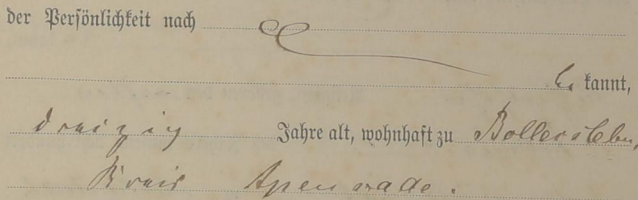 der Persönlichkeit nach
be kannt,
dreizig Jahre alt, wohnhaft zu Bollersleben,
Kreis Apenrade.